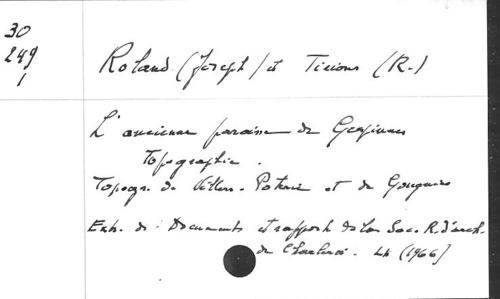 30
249
1
Roland (Joseph) et Ticious (R.)
L'ancienne paroisse de Gerpinnes
Topographie.
Topogr. de Villers-Poterie et de Gougnies
Extr. de : Documents et rapports de la Soc. R. d'arch.
de Charleroi. (1966)